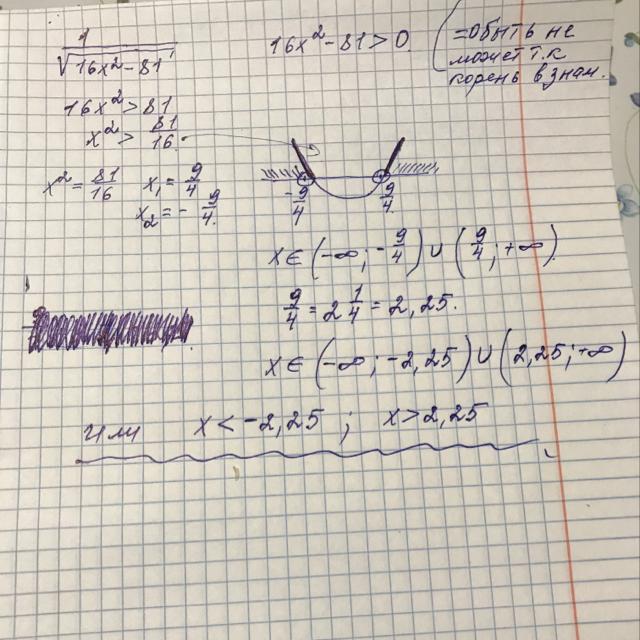 1/√16x²-81
16x²-81>0
(=0 быть не
может т.к
корень в знам.
16x²>81
x²>81/16
x²=81/16 x₁=9/4
x₂=-9/4
-9/4 9/4
x∈(-∞;-9/4)∪(9/4;+∞)
9/4=2 1/4=2,25.
x∈(-∞;-2,25)∪(2,25;+∞)
или x<-2,25; x>2,25